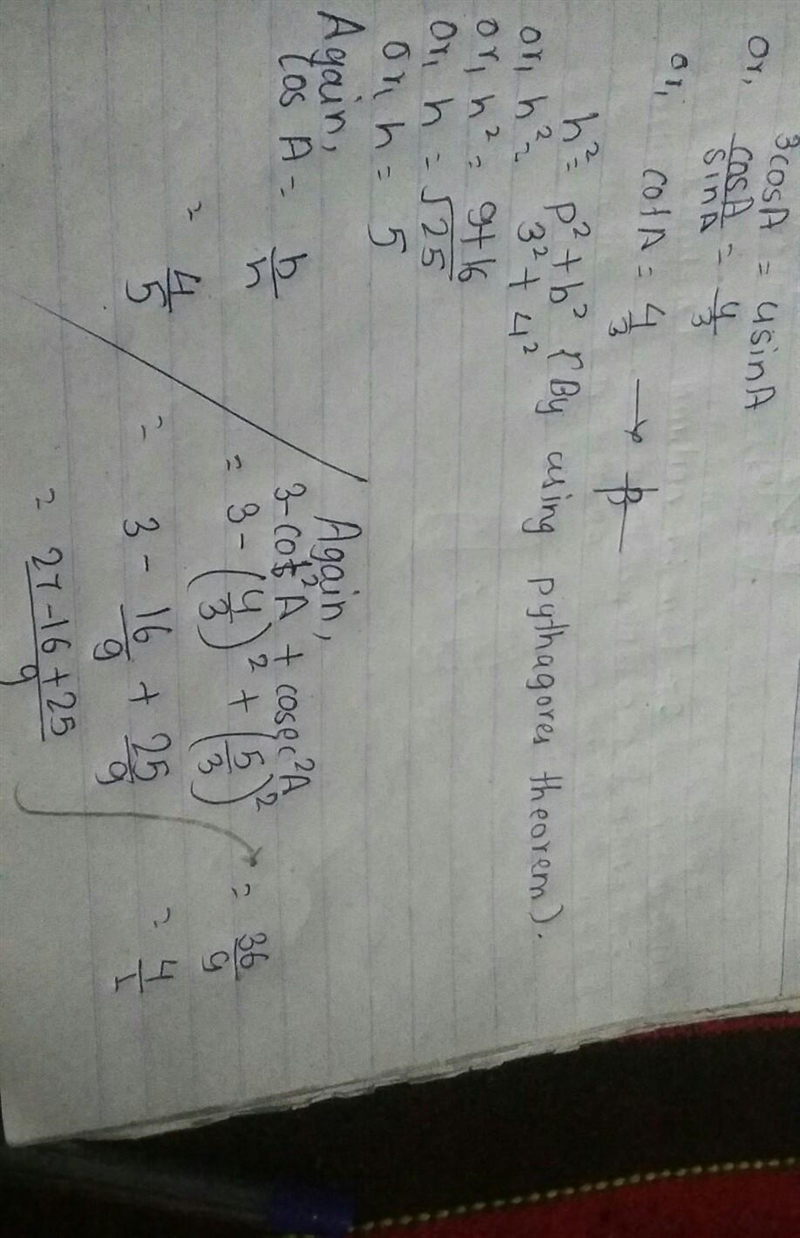 3cosA = 4sinA
or, cosA/sinA = 4/3
or, cotA = 4/3 → p/b
h² = p² + b² {By using pythagores theorem).
or, h² = 3² + 4²
or, h² = 9+16
or, h = √25
or, h = 5
Again,
cos A = b/h
= 4/5
Again,
3-cot²A + cosec²A
= 3 - (4/3)² + (5/3)²
= 3 - 16/9 + 25/9
= 27-16+25/9
= 36/9
= 4/1